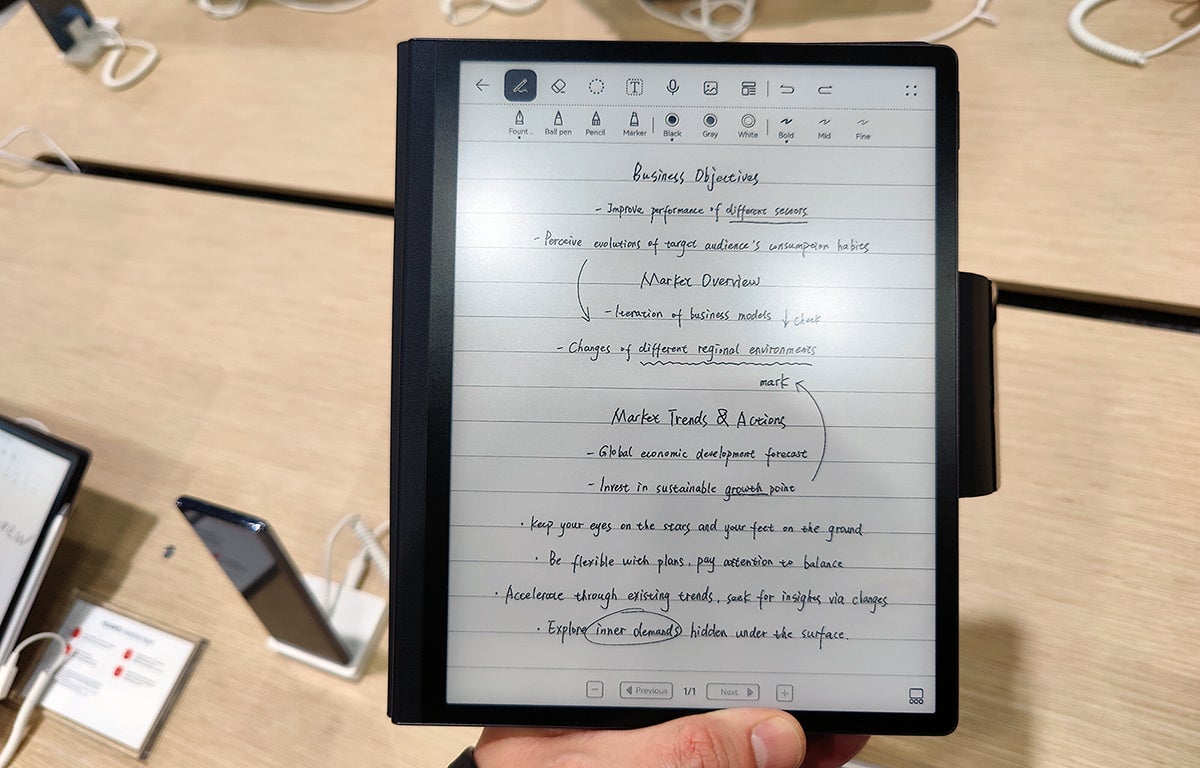 Fount... Ball pen Pencil Marker Black Gray White Bold Mid Fine
Business Objectives
- Improve performance of different sectors
- Perceive evolutions of target audience's consumption habits
Market Overview
- Iteration of business models ↓ check
- Changes of different regional environments
mark
Market Trends & Actions
- Global economic development forecast
- Invest in sustainable growth point
· Keep your eyes on the stars and your feet on the ground.
· Be flexible with plans, pay attention to balance
· Accelerate through existing trends, seek for insights via changes
· Explore inner demands hidden under the surface.
Previous 1/1 Next